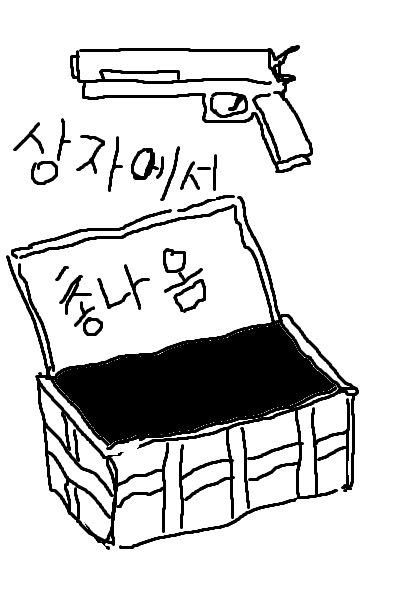 상자에서
총나옴